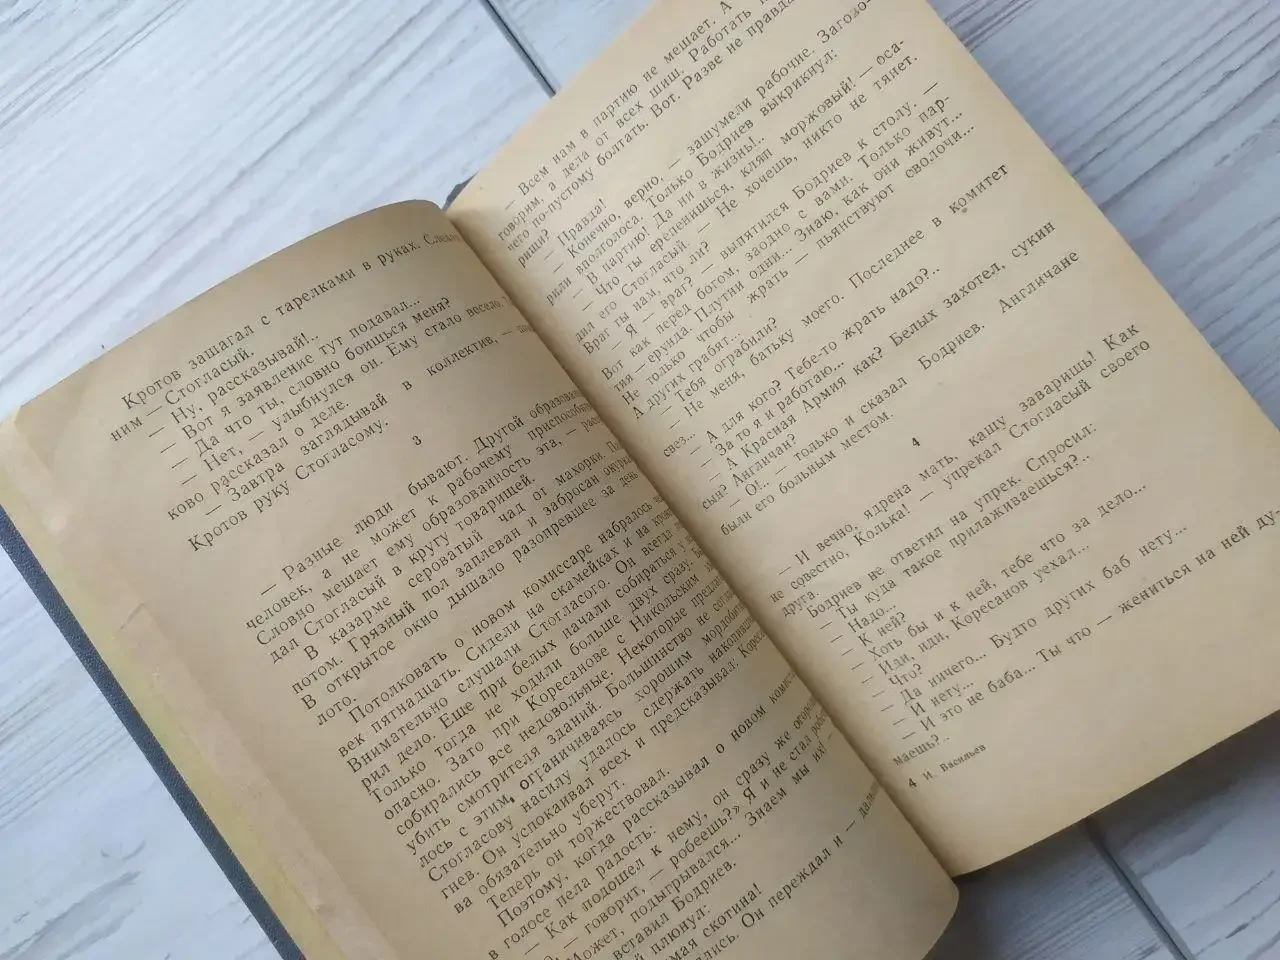 Кротов зашагал с тарелками в руках.
ним — Стогласый.
— Ну, рассказывай!..
— Вот я заявление тут подавал...
— Да что ты, словно боишься меня?
— Нет, — улыбнулся он. Ему стало весело.
ково рассказал о деле.
— Завтра заглядывай в коллектив, —
Кротов руку Стогласому.
3
— Разные люди бывают. Другой
человек, а не может к рабочему
Словно мешает ему образованность эта, —
дал Стогласый в кругу товарищей.
В казарме сероватый чад от махорки.
потом. Грязный пол заплеван и забросан
В открытое окно дышало разопревшее за день
лото.
Потолковать о новом комиссаре набралось
век пятнадцать. Сидели на скамейках и на
Внимательно слушали Стогласого. Он всегда
рил дело. Еще при белых начали собираться у
Только тогда не ходили больше двух сразу.
опасно. Зато при Коресанове с Никольским
собирались все недовольные. Некоторые
убить смотрителя зданий. Большинство не
лось с этим, ограничиваясь хорошим
Стогласову насилу удалось сдержать
гнев. Он успокаивал всех и предсказывал:
ва обязательно уберут.
Теперь он торжествовал.
Поэтому, когда рассказывал о новом
в голосе пела радость:
— Как подошел к нему, он сразу же
— говорит, — робеешь?» Я и не стал
Может, подыгрывался... Знаем мы их! —
вставил Бодриев.
плюнул:
скотина!
Он переждал и —
— Всем нам в партию не мешает. А
говорим, а дела от всех шиш. Работать
чего по-пустому болтать. Вот. Разве не правда
рищи?
— Правда!
— Конечно, верно, — зашумели рабочие. Загово-
рили вполголоса. Только Бодриев выкрикнул:
— В партию! Да ни в жизнь!..
— Что ты ерепенишься, кляп моржовый! — оса-
дил его Стогласый. — Не хочешь, никто не тянет.
Враг ты нам, что ли?
— Я — враг? — выпятился Бодриев к столу. —
Вот как перед богом, заодно с вами. Только пар-
тия — ерунда. Плутни одни... Знаю, как они живут...
Не только чтобы жрать — пьянствуют сволочи...
А других грабят...
— Тебя ограбили?
— Не меня, батьку моего. Последнее в комитет
свез...
— А для кого? Тебе-то жрать надо?..
— За то я и работаю...
— А Красная Армия как? Белых захотел, сукин
сын? Англичан?
— О!.. — только и сказал Бодриев. Англичане
были его больным местом.
4
— И вечно, ядрена мать, кашу заваришь! Как
не совестно, Колька! — упрекал Стогласый своего
друга.
Бодриев не ответил на упрек. Спросил:
— Ты куда такое прилаживаешься?..
— Надо...
— К ней?
— Хоть бы и к ней, тебе что за дело...
— Иди, иди, Коресанов уехал...
— Что?
— Да ничего... Будто других баб нету...
— И нету...
— И это не баба... Ты что — жениться на ней ду-
маешь?..
4 И. Васильев